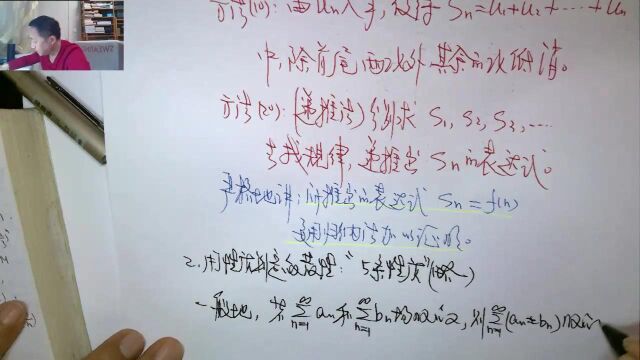 方法(1°): 由 Un入手, 设 Sn=U1+U2+⋯+Un
中, 除首尾两项外其余的项抵消。
方法(2°): (递推法) 分别求 S1, S2, S3, ⋯
去找规律, 递推出 Sn的表达式。
严格地讲: 所推出的表达式 Sn=f(n)
要用归纳法加以证明。
2. 用性质判定敛散性: "5条性质"
一般地, 若 ∑n=1∞ an 和 ∑n=1∞ bn 均收敛, 则 ∑n=1∞ (an±bn)